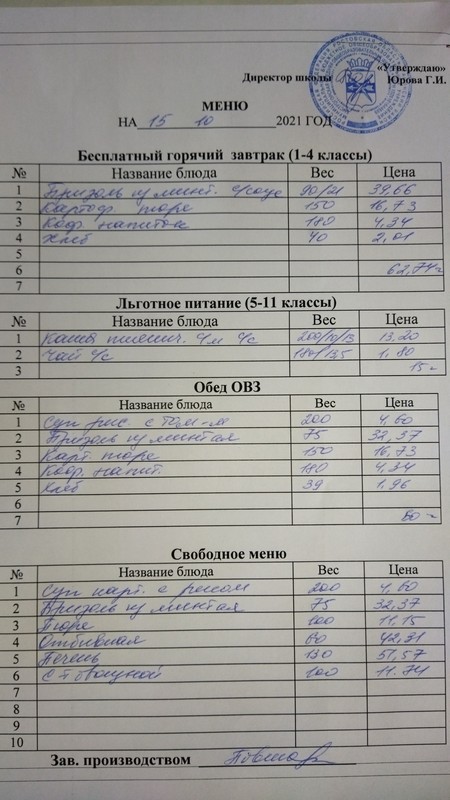 «Утверждаю»
Директор школы Юрова Г.И.
МЕНЮ
НА 15 10 2021 ГОД
Бесплатный горячий завтрак (1-4 классы)
№ Название блюда Вес Цена
1 Бризоль из минт. с/соус 90/21 39,66
2 Картоф. пюре 150 16,73
3 Коф. напиток 180 4,34
4 Хлеб 40 2,01
5
6 62,74
7
Льготное питание (5-11 классы)
№ Название блюда Вес Цена
1 Каша пшенич. 200/10/13 13,20
2 Чай с/с 180/13,5 1,80
3 15 -
Обед ОВЗ
№ Название блюда Вес Цена
1 Суп рис. с 200 4,60
2 Бризоль из минтая 75 32,37
3 Карт. пюре 150 16,73
4 Коф. напит. 180 4,34
5 Хлеб 39 1,96
6
7 60 -
Свободное меню
№ Название блюда Вес Цена
1 Суп карт. с рисом 200 4,60
2 Бризоль из минтая 75 32,37
3 Пюре 100 11,15
4 Отбивная 80 42,31
5 Печень 130 51,57
6 100 11.74
7
8
9
10
Зав. производством